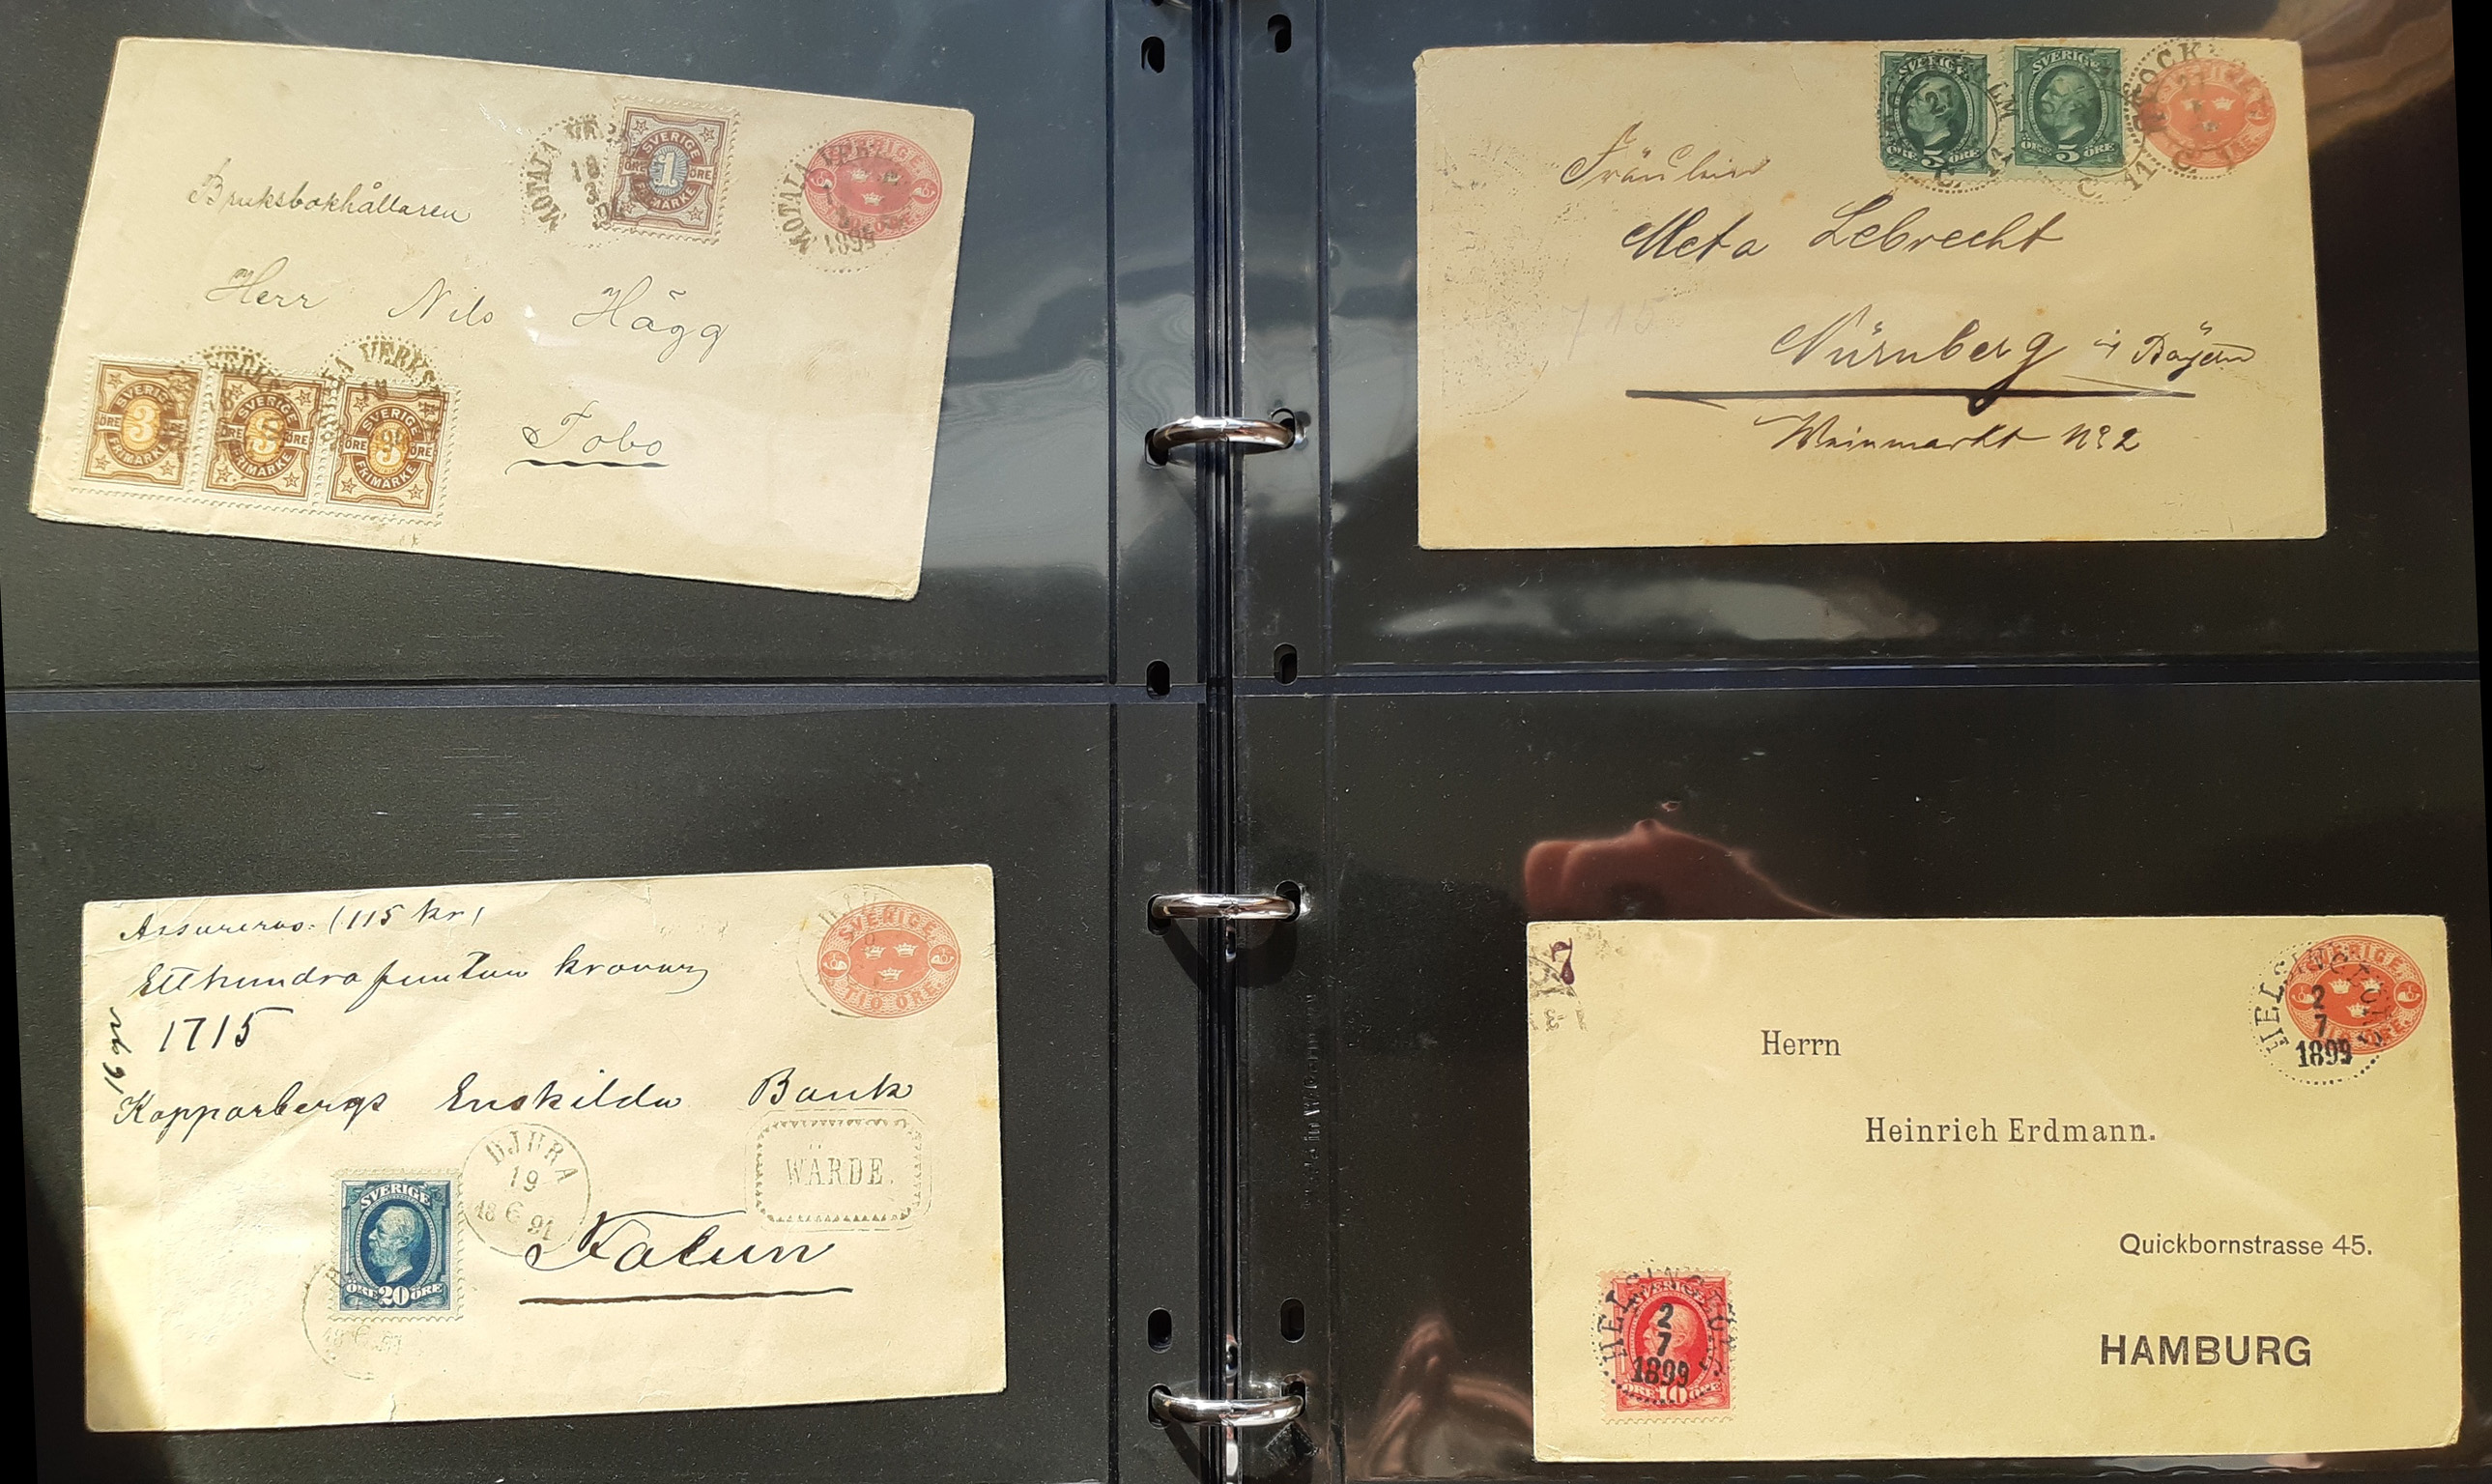 MOTALA VERKSTAD
18
SVERIGE
ÖRE 1 ÖRE
FRIMÄRKE
MOTALA VERKSTAD
1895
SVERIGE
Bruksbokhållaren
Herr Nils Hägg
SVERIGE
ÖRE 3 ÖRE
FRIMÄRKE
SVERIGE
ÖRE ÖRE
FRIMÄRKE
SVERIGE
ÖRE 3 ÖRE
FRIMÄRKE
Tobo
SVERIGE
ÖRE 5 ÖRE
SVERIGE
ÖRE 5 ÖRE
Fräulein
Meta Lebrecht
715
Nürnberg i Bayern
Weinmarkt No 2
Assureras. (115 kr)
Etthundrafemton kronor
1715
Kopparbergs Enskilda Bank
SVERIGE
TIO ÖRE.
DJURA
19
18 6 91
WÄRDE.
Falun
SVERIGE
ÖRE 20 ÖRE
7
SVERIGE
TIO ÖRE.
HELSINGBORG
2
7
1899
Herrn
Heinrich Erdmann.
Quickbornstrasse 45.
HAMBURG
SVERIGE
ÖRE 10 ÖRE
HELSINGBORG
2
7
1899